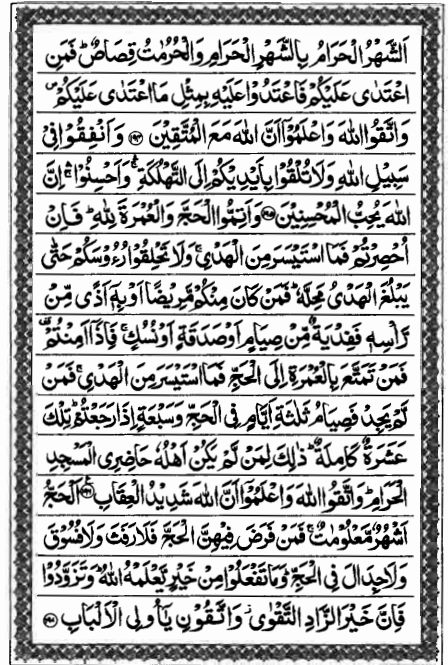 اَلشَّهْرُ الْحَرَامُ بِالشَّهْرِ الْحَرَامِ وَالْحُرُمٰتُ قِصَاصٌ ؕ فَمَنِ
اعْتَدٰى عَلَيْكُمْ فَاعْتَدُوْا عَلَيْهِ بِمِثْلِ مَا اعْتَدٰى عَلَيْكُمْ ۪
وَاتَّقُوا اللّٰهَ وَاعْلَمُوْۤا اَنَّ اللّٰهَ مَعَ الْمُتَّقِيْنَ ﴿۱۹۴﴾ وَاَنْفِقُوْا فِيْ
سَبِيْلِ اللّٰهِ وَلَا تُلْقُوْا بِاَيْدِيْكُمْ اِلَى التَّهْلُكَةِ ۛۚ وَاَحْسِنُوْا ۛۚ اِنَّ
اللّٰهَ يُحِبُّ الْمُحْسِنِيْنَ ﴿۱۹۵﴾ وَاَتِمُّوا الْحَجَّ وَالْعُمْرَةَ لِلّٰهِ ؕ فَاِنْ
اُحْصِرْتُمْ فَمَا اسْتَيْسَرَ مِنَ الْهَدْيِ ۚ وَلَا تَحْلِقُوْا رُءُوْسَكُمْ حَتّٰى
يَبْلُغَ الْهَدْيُ مَحِلَّهٗ ؕ فَمَنْ كَانَ مِنْكُمْ مَّرِيْضًا اَوْ بِهٖۤ اَذًى مِّنْ
رَّاْسِهٖ فَفِدْيَةٌ مِّنْ صِيَامٍ اَوْ صَدَقَةٍ اَوْ نُسُكٍ ۚ فَاِذَاۤ اَمِنْتُمْ ۥ
فَمَنْ تَمَتَّعَ بِالْعُمْرَةِ اِلَى الْحَجِّ فَمَا اسْتَيْسَرَ مِنَ الْهَدْيِ ۚ فَمَنْ
لَّمْ يَجِدْ فَصِيَامُ ثَلٰثَةِ اَيَّامٍ فِي الْحَجِّ وَسَبْعَةٍ اِذَا رَجَعْتُمْ ؕ تِلْكَ
عَشَرَةٌ كَامِلَةٌ ؕ ذٰلِكَ لِمَنْ لَّمْ يَكُنْ اَهْلُهٗ حَاضِرِي الْمَسْجِدِ
الْحَرَامِ ؕ وَاتَّقُوا اللّٰهَ وَاعْلَمُوْۤا اَنَّ اللّٰهَ شَدِيْدُ الْعِقَابِ ﴿۱۹۶﴾ اَلْحَجُّ
اَشْهُرٌ مَّعْلُوْمٰتٌ ۚ فَمَنْ فَرَضَ فِيْهِنَّ الْحَجَّ فَلَا رَفَثَ وَلَا فُسُوْقَ
وَلَا جِدَالَ فِي الْحَجِّ ؕ وَمَا تَفْعَلُوْا مِنْ خَيْرٍ يَّعْلَمْهُ اللّٰهُ ؕ وَتَزَوَّدُوْا
فَاِنَّ خَيْرَ الزَّادِ التَّقْوٰى ۫ وَاتَّقُوْنِ يٰۤاُولِي الْاَلْبَابِ ﴿۱۹۷﴾